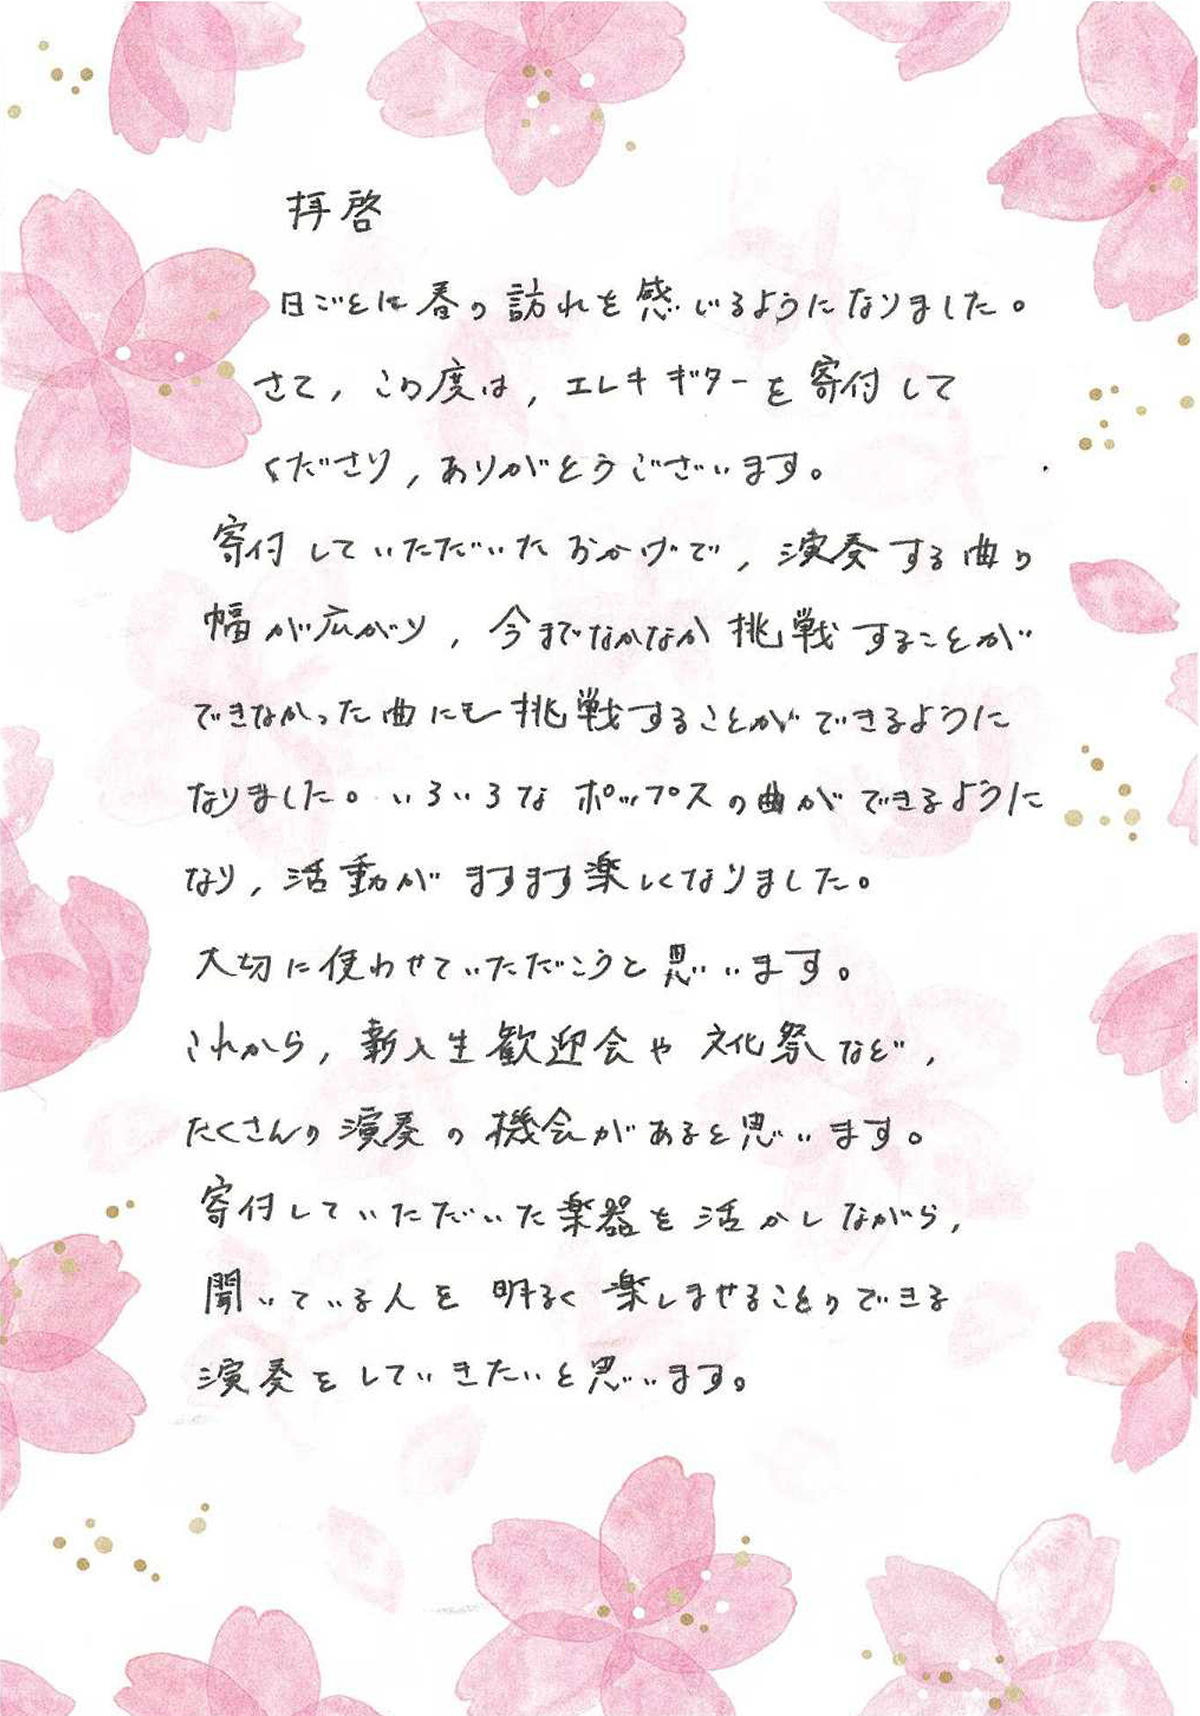 拝啓
日ごとに春の訪れを感じるようになりました。
さて,この度は,エレキギターを寄付して
くださり,ありがとうございます。
寄付していただいたおかげで,演奏する曲の
幅が広がり,今までなかなか挑戦することが
できなかった曲にも挑戦することができるように
なりました。いろいろなポップスの曲ができるように
なり,活動がますます楽しくなりました。
大切に使わせていただこうと思います。
これから,新入生歓迎会や文化祭など,
たくさんの演奏の機会があると思います。
寄付していただいた楽器を活かしながら,
聞いている人を明るく楽しませることのできる
演奏をしていきたいと思います。